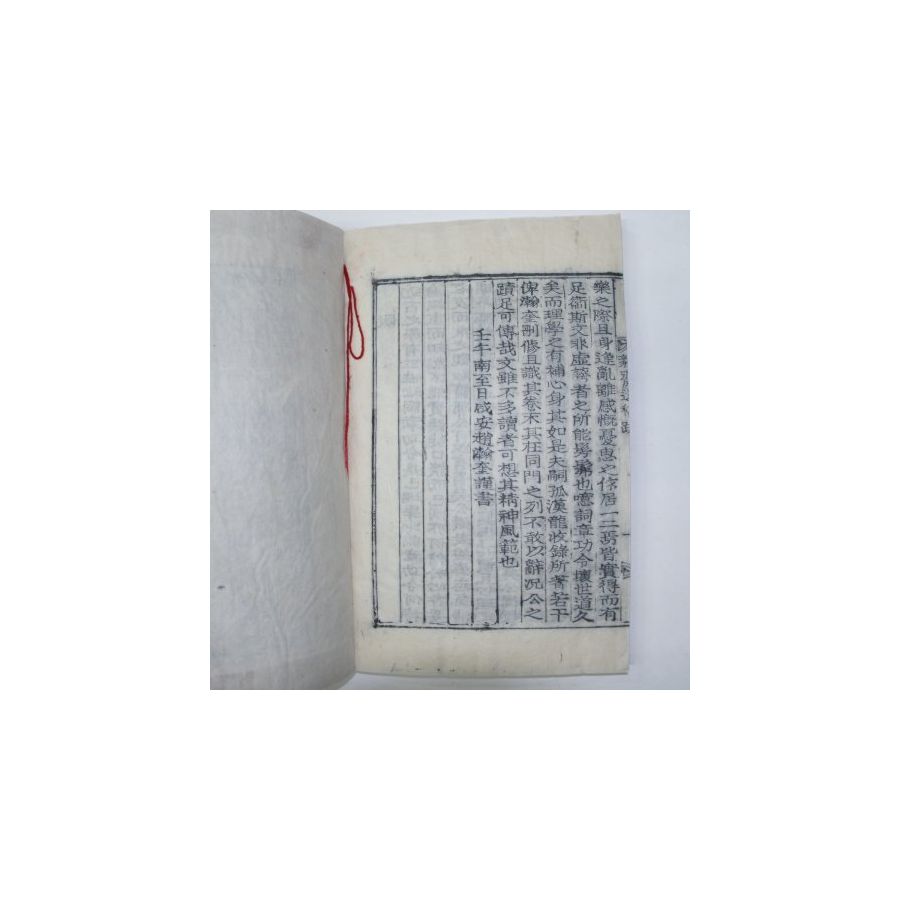 樂之際且身逢亂離感慨憂患之作居一二焉皆實得而有
足衛斯文非虛䈥者之所能髣髴也噫詞章功令壞世道久
矣而理學之有補心身其如是夫嗣孤漢龍收錄所著若干
俾瀚奎刪修且識其卷末其在同門之列不敢以辭況公之
蹟足可傳哉文雖不多讀者可想其精神風範也
壬午南至日咸安趙瀚奎謹書